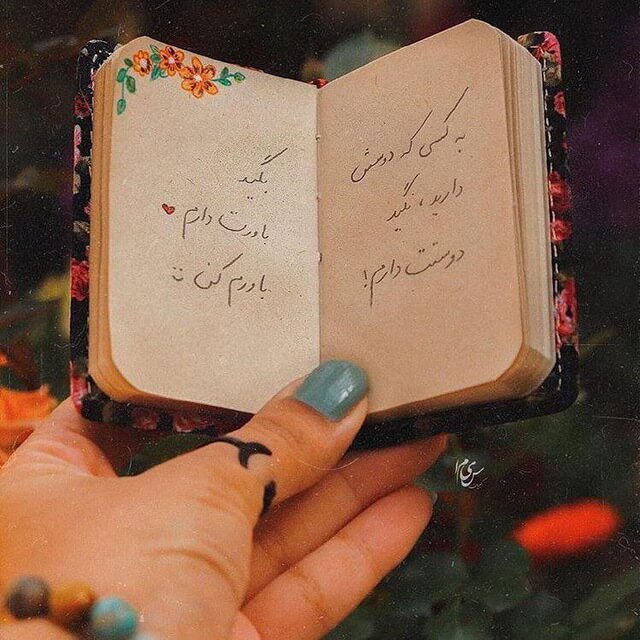 به کسی که دوسش
دارید ، نگید
دوستت دارم!
بگید
باورت دارم
باورم کن